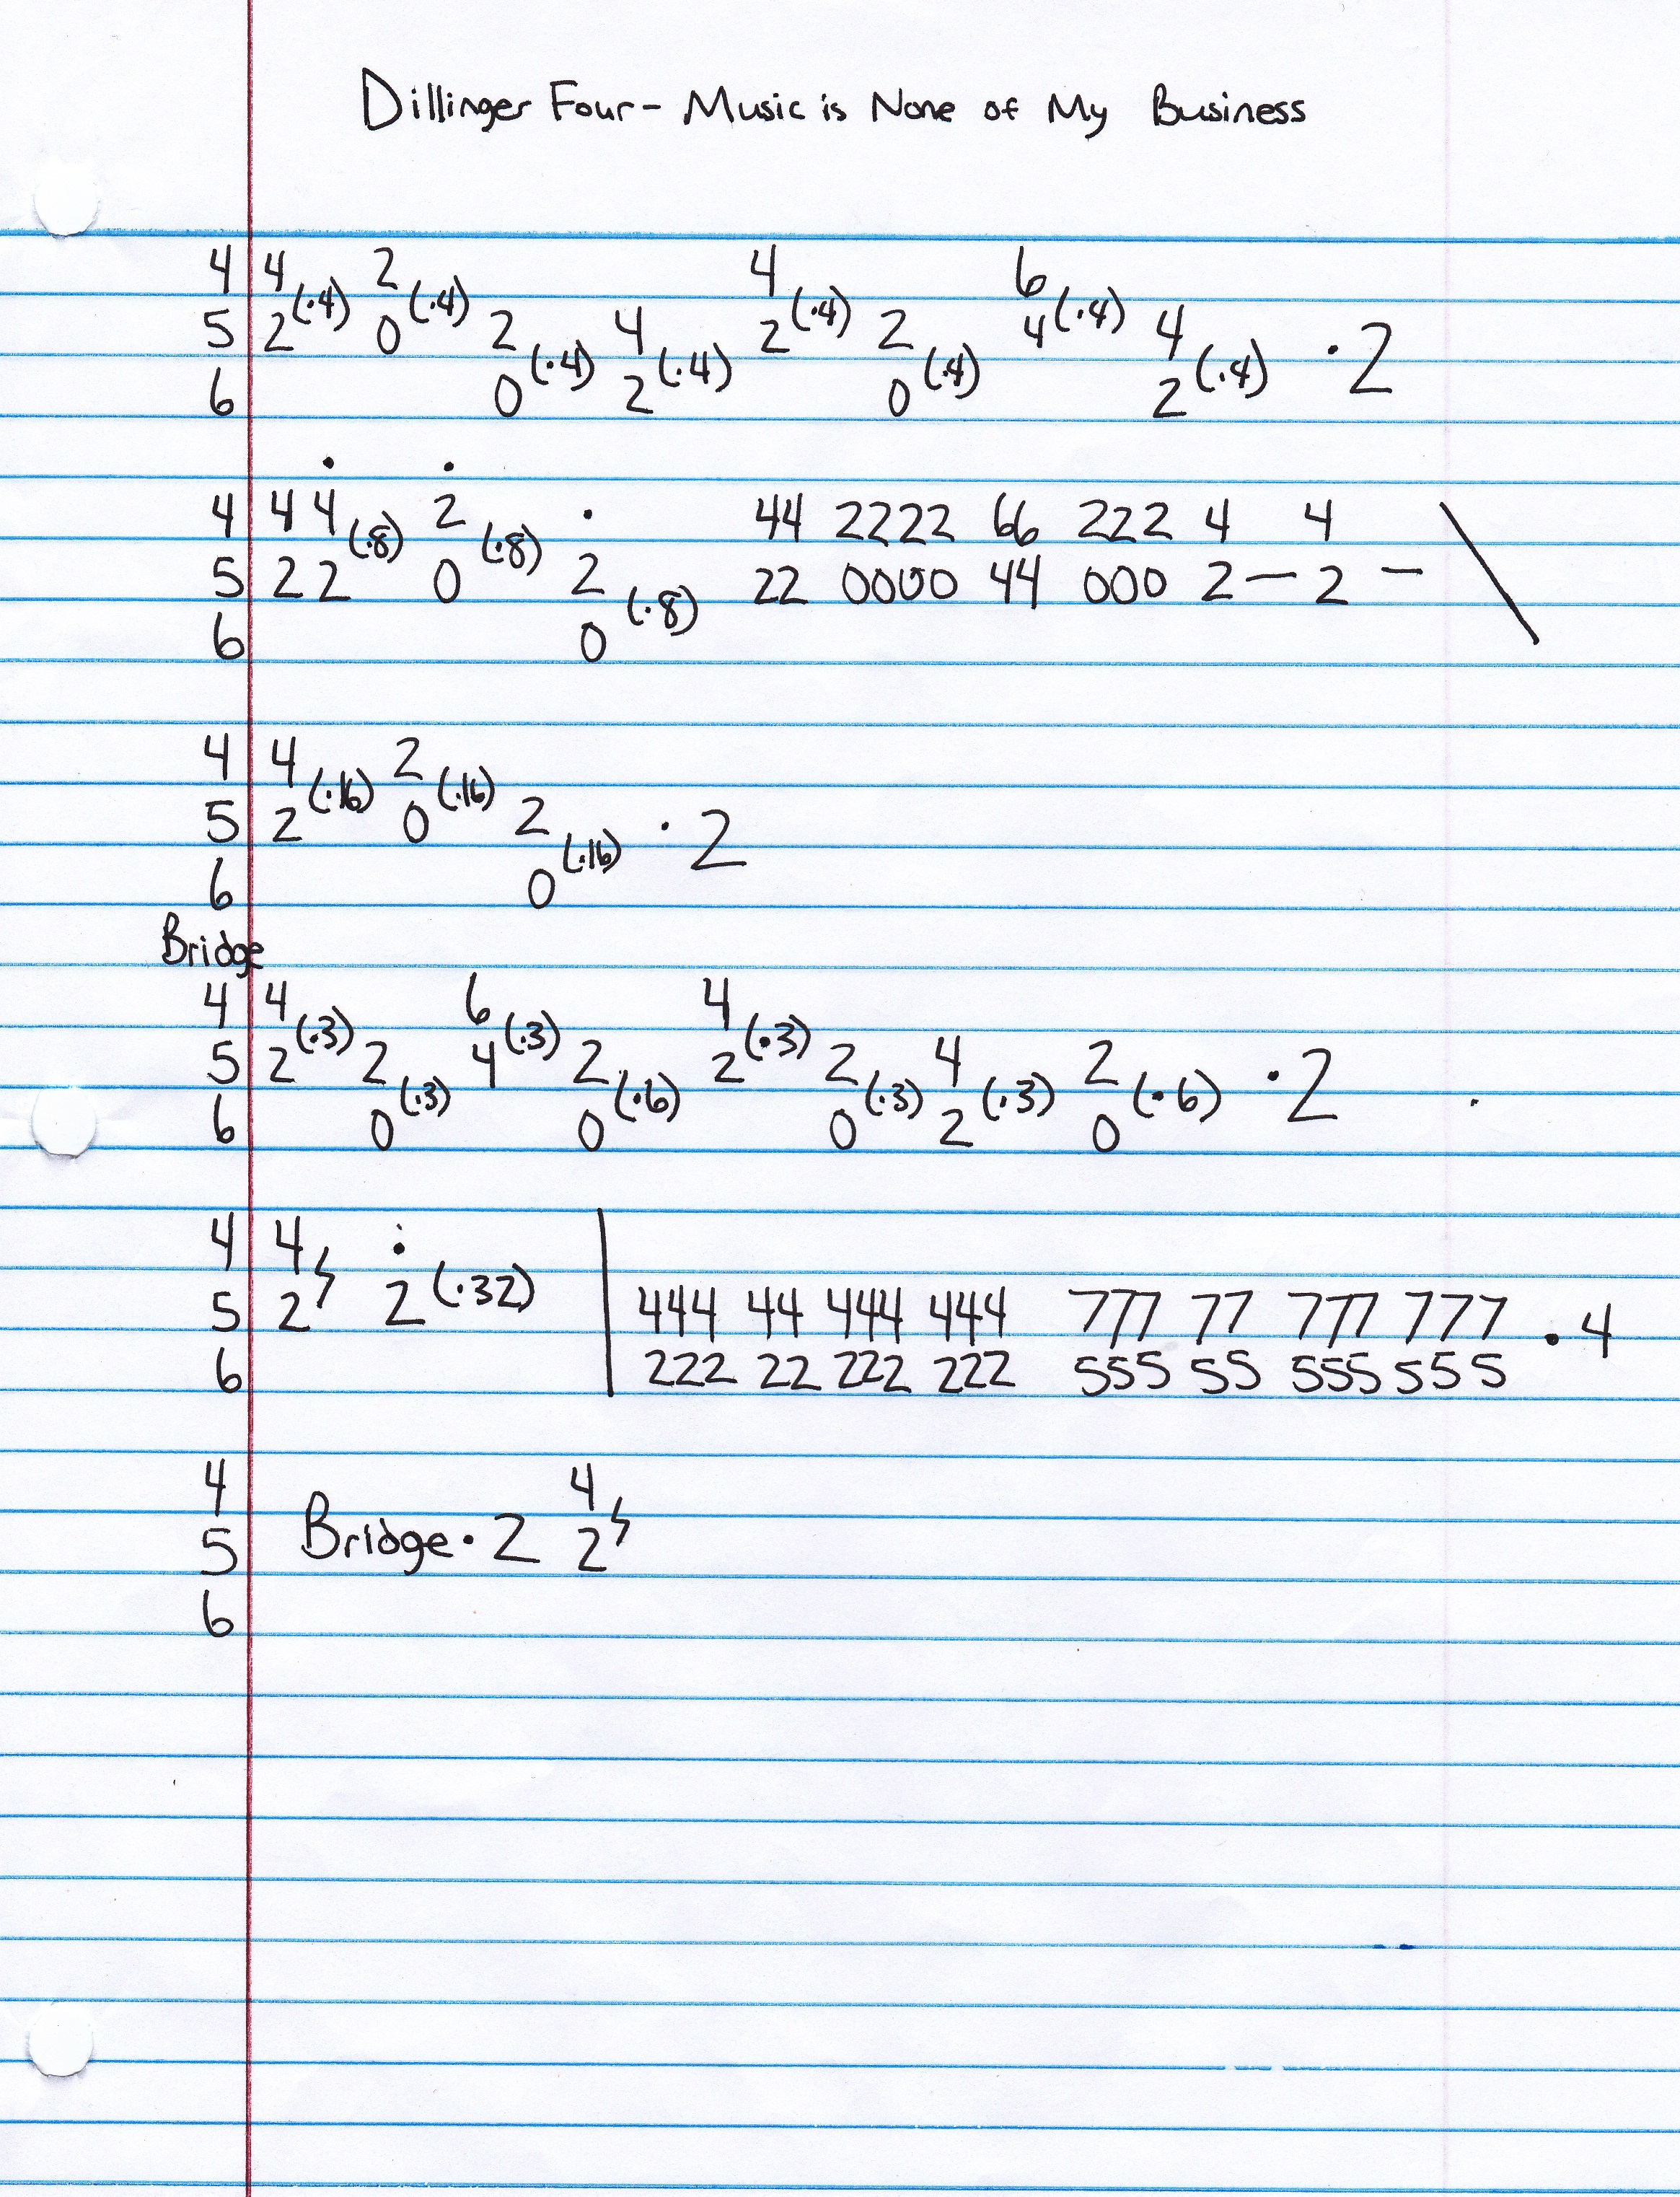 Dillinger Four - Music is None of My Business
4 4 2 4 6
(·4) (·4) (·4) (·4)
5 2 0 2 4 2 2 4 4 ·2
(·4) (·4) (·4) (·4)
6 0 2 0 2
4 44 2 44 2222 66 222 4 4
(·8) (·8)
5 22 0 2 22 0000 44 000 2 — 2 — \
(·8)
6 0
4 4 2
(·16) (·16)
5 2 0 2 ·2
(·16)
6 0
Bridge
4 4 6 4
(·3) (·3) (·3)
5 2 2 4 2 2 2 4 2 ·2
(·3) (·6) (·3) (·3) (·6)
6 0 0 0 2 0
4 4
5 2 2 (·32) | 444 44 444 444 777 77 777 777 ·4
6 222 22 222 222 555 55 555 555
4 4
5 Bridge ·2 2
6